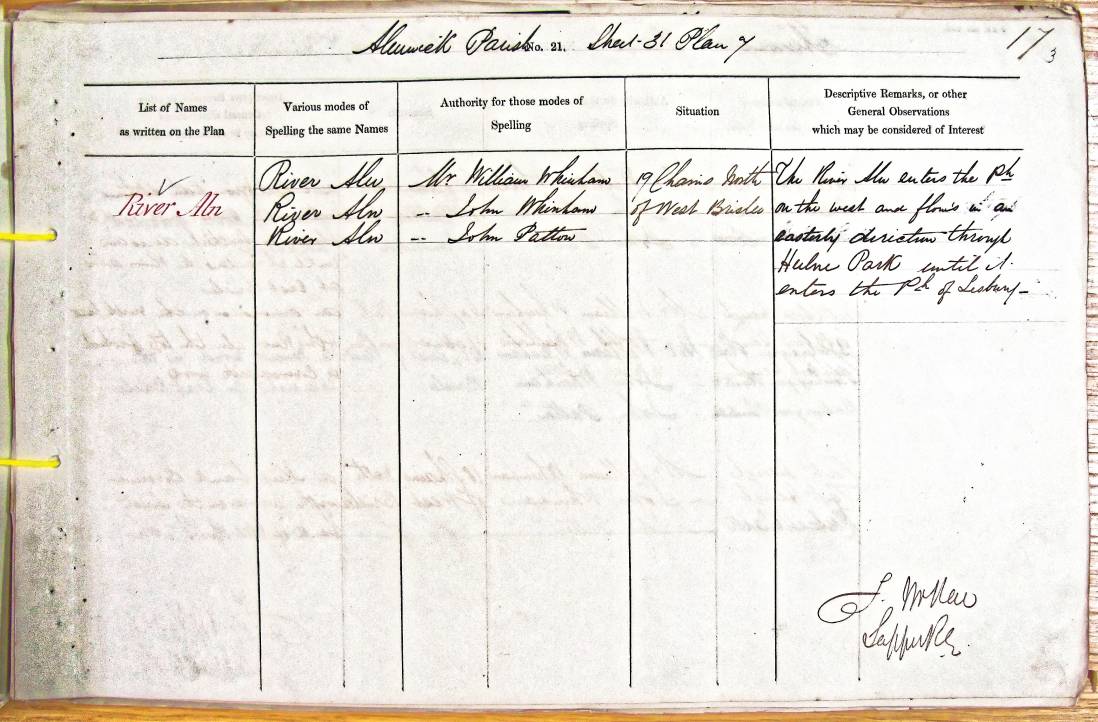 Alnwick Parish No. 21. Sheet 31 Plan 7
17
3
List of Names
as written on the Plan
Various modes of
Spelling the same Names
Authority for those modes of
Spelling
Situation
Descriptive Remarks, or other
General Observations
which may be considered of Interest
River Aln
River Aln
River Aln
River Aln
Mr William Whinham
" John Whinham
" John Patton
19 Chains North
of West Brislee
The River Aln enters the Ph
on the west and flows in an
easterly direction through
Hulne Park until it
enters the Ph of Lesbury
J.
Sapper R.E.